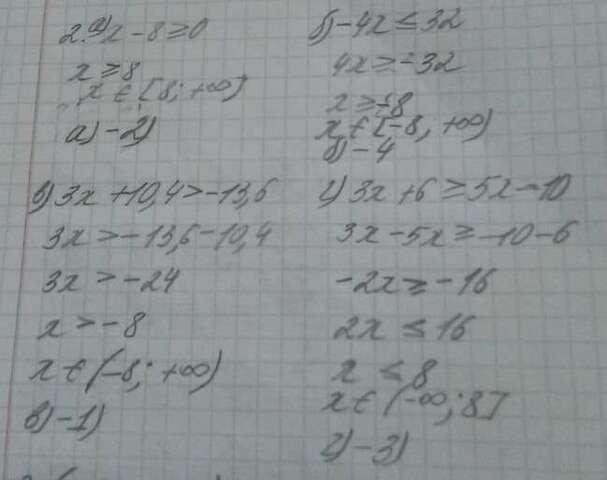 2. а) x - 8 ≥ 0
x ≥ 8
x ∈ [8; +∞)
а) - 2)
б) -4x ≤ 32
4x ≥ -32
x ≥ -8
x ∈ [-8; +∞)
б) - 4
в) 3x + 10,4 > -13,6
3x > -13,6 - 10,4
3x > -24
x > -8
x ∈ (-8; +∞)
в) - 1)
г) 3x + 6 ≥ 5x - 10
3x - 5x ≥ -10 - 6
-2x ≥ -16
2x ≤ 16
x ≤ 8
x ∈ (-∞; 8]
г) - 3)